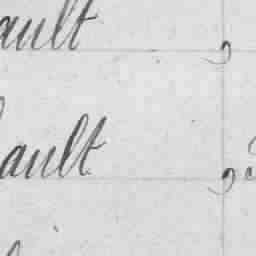 ault ,
ault ,